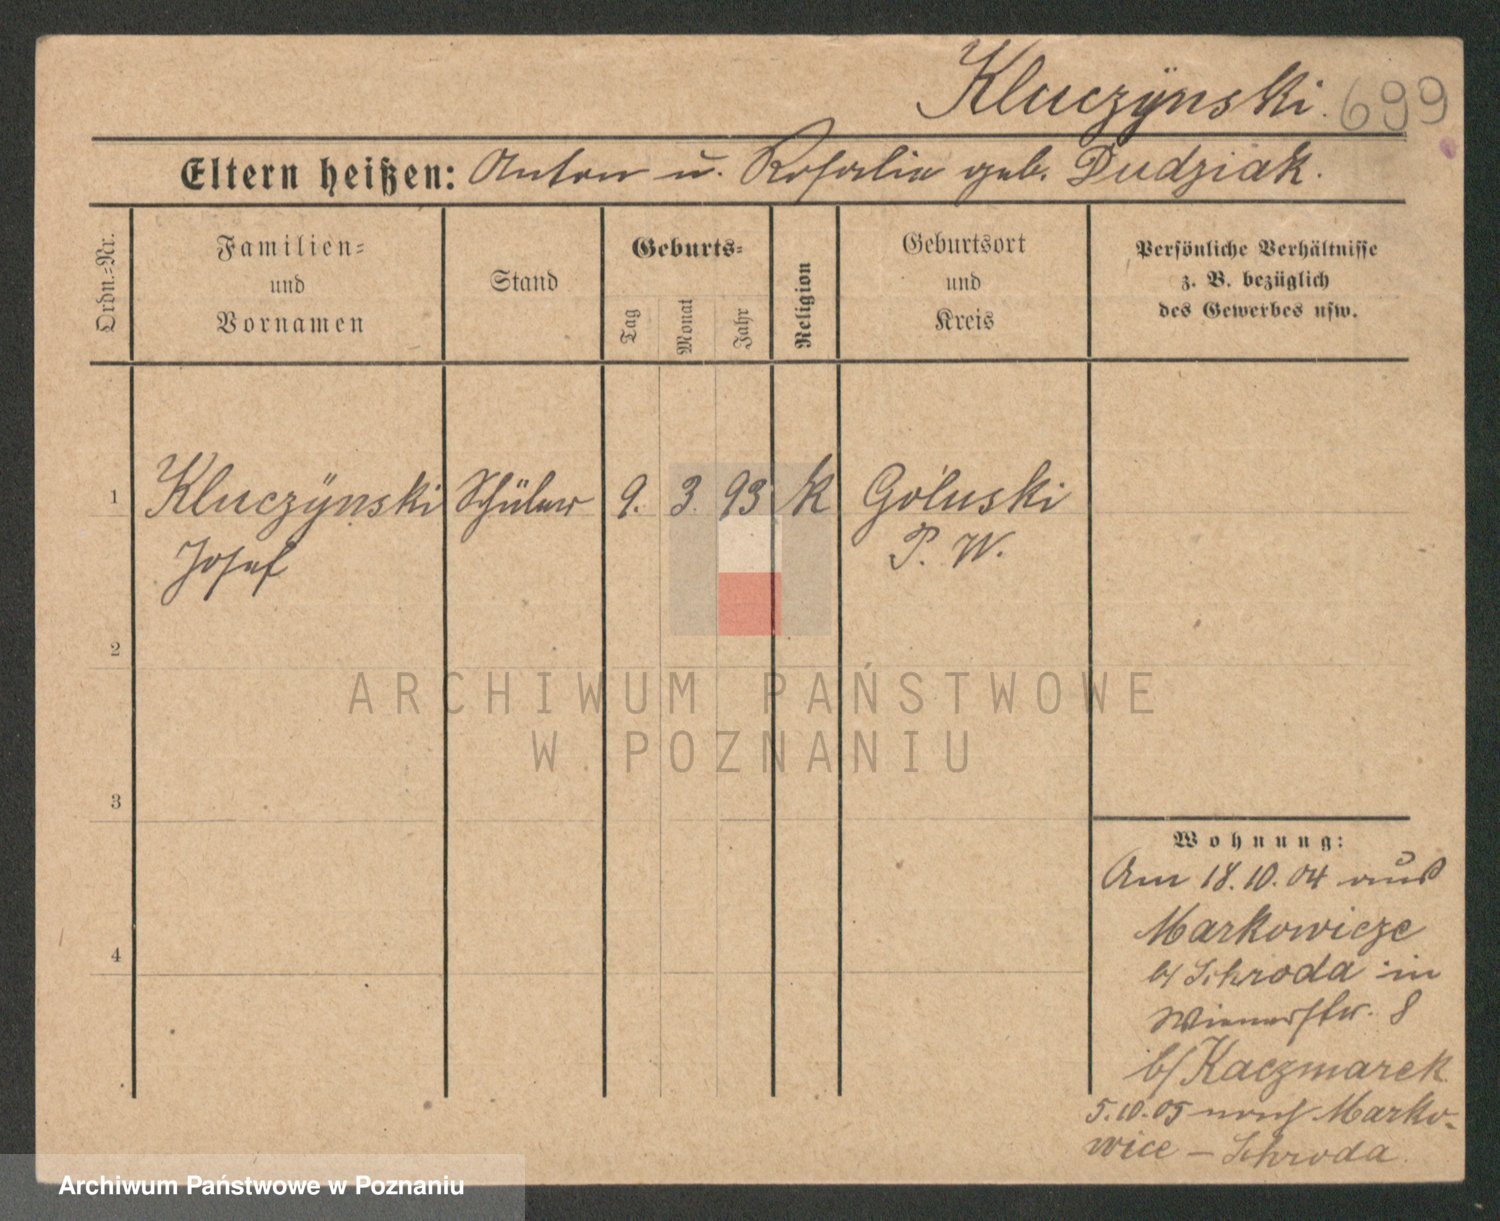 Kluczÿnski. 699
Eltern heißen: Anton u. Rosalie geb. Dudziak.
Ordn.=Nr.
Familien=
und
Vornamen
Stand
Geburts=
Tag
Monat
Jahr
Religion
Geburtsort
und
Kreis
Persönliche Verhältnisse
z. B. bezüglich
des Gewerbes usw.
1 Kluczÿnski Schüler 9. 3. 93 K Góluski
Josef P. W.
2
3
4
Wohnung:
Am 18.10.04 aus
Markowicze
b/ Schroda in
Wienerstr. 8
b/ Kaczmarek
5.10.05 nach Marko-
wice – Schroda.
ARCHIWUM PAŃSTWOWE
W POZNANIU
Archiwum Państwowe w Poznaniu